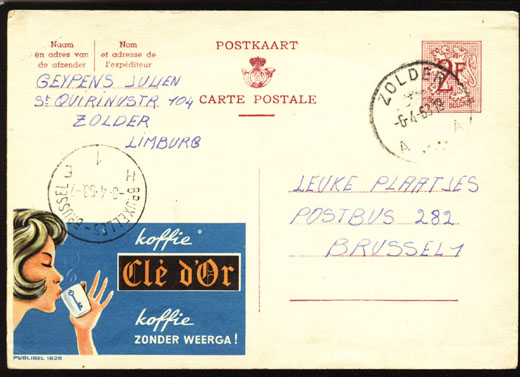 Naam
en adres van
de afzender
Nom
et adresse de
l'expéditeur
POSTKAART
CARTE POSTALE
2F
GEYPENS JULIEN
St QUIRINUSTR 104
ZOLDER
LIMBURG
ZOLDER
-6-4-63
A A
1
H E
-8-4-63-
BRUXELLES - BRUSSEL
LEUKE PLAATJES
POSTBUS 282
BRUSSEL 1
koffie
Clé d'Or
koffie
ZONDER WEERGA!
PUBLIBEL 1826